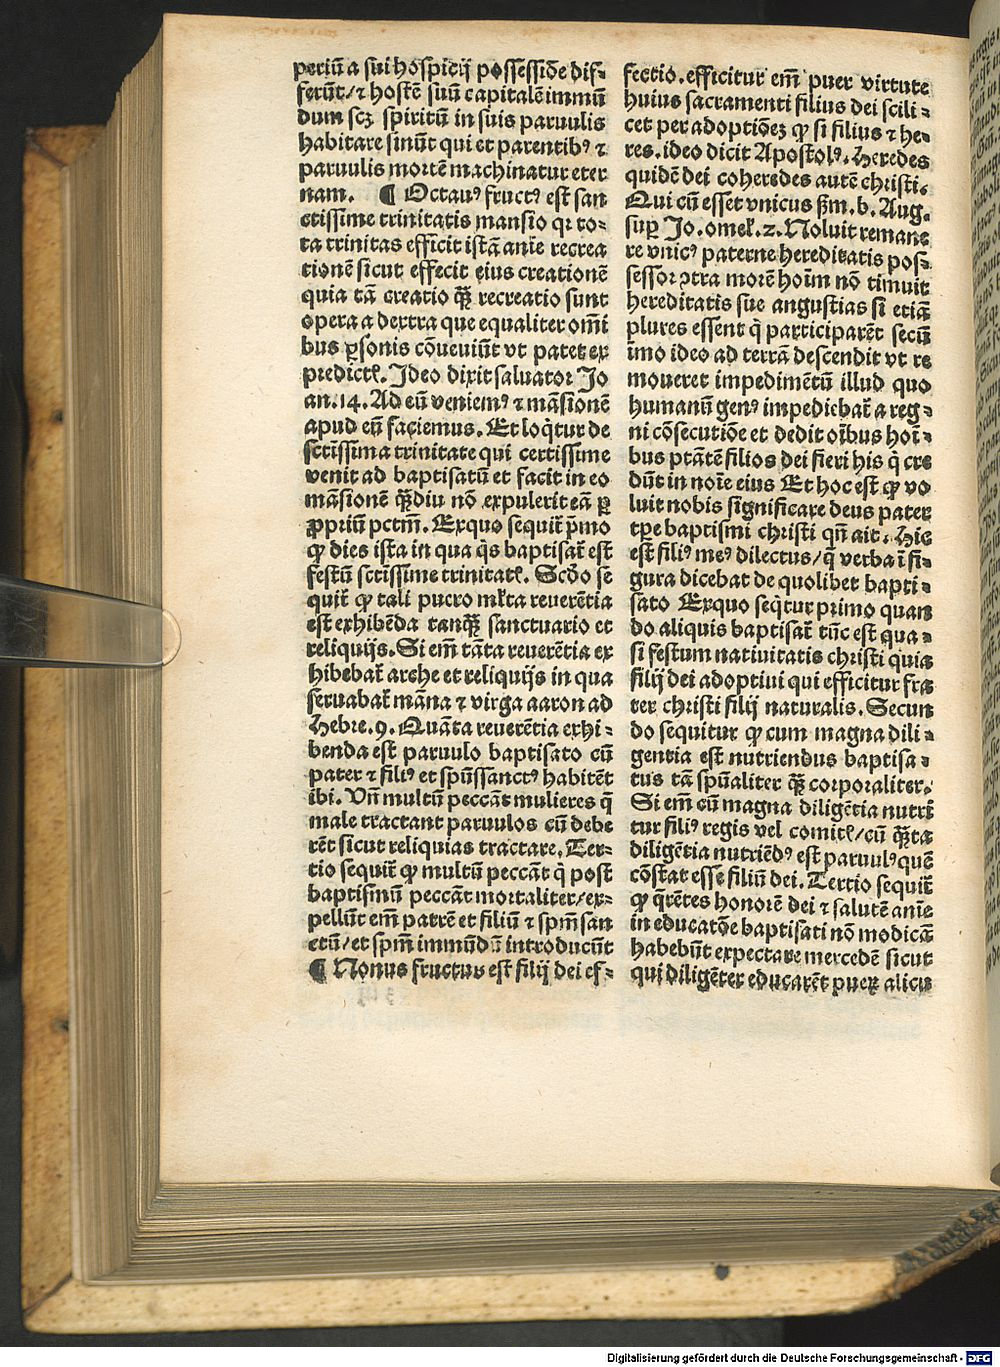 periū a sui hospicij possessiōe dif-
ferūt/⁊ hostē suū capitalē immū
dum scꝫ spiritū in suis paruulis
habitare sinūt qui et parentibꝰ ⁊
paruulis mortē machinatur eter
nam. ¶ Octauꝰ fructꝰ est san
ctissime trinitatis mansio qꝛ to-
ta trinitas efficit istā anīe recrea
tionē sicut effecit eius creationē
quia tā creatio qȝ̄ recreatio sunt
opera a dextra que equaliter om̄i
bus ꝑsonis cōueniūt vt patet ex
predictꝭ. Ideo dixit saluator Jo
an.14. Ad eū veniemꝰ ⁊ māsionē
apud eū faciemus. Et loq̇tur de
sctīssima trinitate qui certissime
venit ad baptisatū et facit in eo
māsionē qȝ̄diu nō expulerit eā ꝑ
ꝓpriū pctm̄. Exquo sequit̄ p̄mo
ꝙ dies ista in qua q̇s baptisat̄ est
festū sctīssime trinitatꝭ. Scd̄o se
quit̄ ꝙ tali puero ml̄ta reuerētia
est exhibēda tanqȝ̄ sanctuario et
reliquijs. Si em̄ tāta reuerētia ex
hibebat̄ arche et reliquijs in qua
seruabat̄ māna ⁊ virga aaron ad
Hebre.9. Quāta reuerētia exhi-
benda est paruulo baptisato cū
pater ⁊ filiꝰ et spūssanctꝰ habitēt
ibi. Vn̄ multū peccāt mulieres q̄
male tractant paruulos cū debe
rēt sicut reliquias tractare. Ter-
tio sequit̄ ꝙ multū peccāt q̇ post
baptismū peccāt mortaliter/ex-
pellūt em̄ patrē et filiū ⁊ spm̄ san
ctū/et spm̄ immūdū introducūt
¶ Nonus fructus est filij dei ef-
fectio. efficitur em̄ puer virtute
huius sacramenti filius dei scili-
cet per adoptiōeꝫ ꝙ si filius ⁊ he-
res. ideo dicit Apostolꝰ. Heredes
quidē dei coheredes autē christi.
Qui cū esset vnicus ẜm. b. Aug.
suꝑ Jo. omel̄. 2. Noluit remane
re vnicꝰ paterne hereditatis pos-
sessor ↄtra morē hoīm nō timuit
hereditatis sue angustias si etiā
plures essent q̇ participarēt secū
imo ideo ad terrā descendit vt re
moueret impedimētū illud quo
humanū genꝰ impediebat̄ a reg-
ni cōsecutiōe et dedit oībus hoī-
bus ptātē filios dei fieri his q̇ cre
dūt in noīe eius Et hoc est ꝙ vo
luit nobis significare deus pater
tꝑe baptismi christi qn̄ ait. Hic
est filiꝰ meꝰ dilectus/q̄ verba ī fi-
gura dicebat de quolibet bapti-
sato Exquo seq̇tur primo quan
do aliquis baptisat̄ tūc est qua-
si festum natiuitatis christi quia
filij dei adoptiui qui efficitur fra
ter christi filij naturalis. Secun
do sequitur ꝙ cum magna dili-
gentia est nutriendus baptisa-
tus tā spūaliter qȝ̄ corporaliter.
Si em̄ cū magna diligētia nutri
tur filiꝰ regis vel comitꝭ/cū qȝ̄ta
diligētia nutriēdꝰ est paruulꝰ quē
cōstat esse filiū dei. Tertio sequit̄
ꝙ q̄rētes honorē dei ⁊ salutē anīe
in educatōe baptisati nō modicā
habebūt expectare mercedē sicut
qui diligēter educarēt pueꝝ alicu
Digitalisierung gefördert durch die Deutsche Forschungsgemeinschaft - DFG